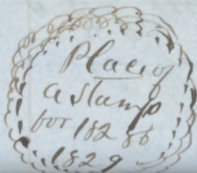 Place of
a Stamp
for 1828 &
1829